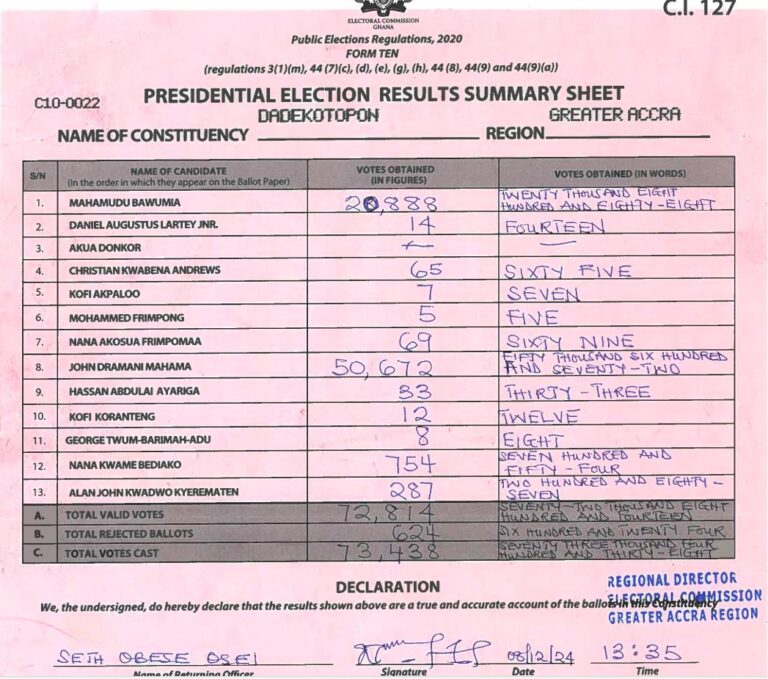 C.I. 127
ELECTORAL COMMISSION
GHANA
Public Elections Regulations, 2020
FORM TEN
(regulations 3(1)(m), 44 (7)(c), (d), (e), (g), (h), 44 (8), 44(9) and 44(9)(a))
C10-0022 PRESIDENTIAL ELECTION RESULTS SUMMARY SHEET
DADEKOTOPON GREATER ACCRA
NAME OF CONSTITUENCY REGION
S/N NAME OF CANDIDATE (In the order in which they appear on the Ballot Paper) VOTES OBTAINED (IN FIGURES) VOTES OBTAINED (IN WORDS)
1. MAHAMUDU BAWUMIA 20,888 TWENTY THOUSAND EIGHT HUNDRED AND EIGHTY-EIGHT
2. DANIEL AUGUSTUS LARTEY JNR. 14 FOURTEEN
3. AKUA DONKOR — —
4. CHRISTIAN KWABENA ANDREWS 65 SIXTY FIVE
5. KOFI AKPALOO 7 SEVEN
6. MOHAMMED FRIMPONG 5 FIVE
7. NANA AKOSUA FRIMPOMAA 69 SIXTY NINE
8. JOHN DRAMANI MAHAMA 50,672 FIFTY THOUSAND SIX HUNDRED AND SEVENTY-TWO
9. HASSAN ABDULAI AYARIGA 33 THIRTY-THREE
10. KOFI KORANTENG 12 TWELVE
11. GEORGE TWUM-BARIMAH-ADU 8 EIGHT
12. NANA KWAME BEDIAKO 754 SEVEN HUNDRED AND FIFTY-FOUR
13. ALAN JOHN KWADWO KYEREMATEN 287 TWO HUNDRED AND EIGHTY-SEVEN
A. TOTAL VALID VOTES 72,814 SEVENTY-TWO THOUSAND EIGHT HUNDRED AND FOURTEEN
B. TOTAL REJECTED BALLOTS 624 SIX HUNDRED AND TWENTY FOUR
C. TOTAL VOTES CAST 73,438 SEVENTY THREE THOUSAND FOUR HUNDRED AND THIRTY-EIGHT
DECLARATION
We, the undersigned, do hereby declare that the results shown above are a true and accurate account of the ballots in this Constituency
REGIONAL DIRECTOR
ELECTORAL COMMISSION
GREATER ACCRA REGION
SETH OBESE OSEI 08/12/24 13:35
Name of Returning Officer Signature Date Time